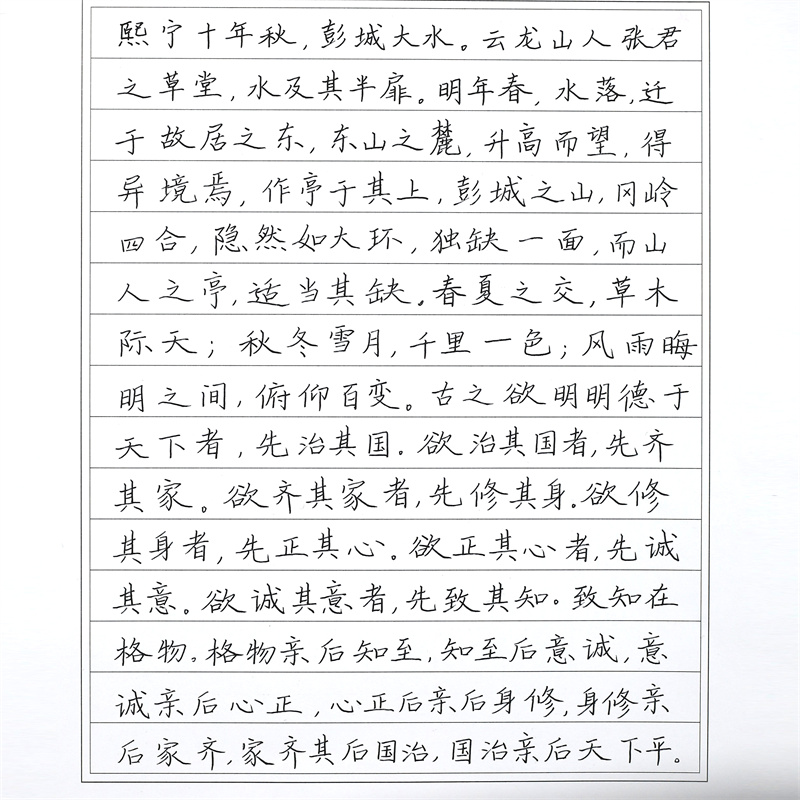 熙宁十年秋，彭城大水。云龙山人张君
之草堂，水及其半扉。明年春，水落，迁
于故居之东，东山之麓，升高而望，得
异境焉，作亭于其上，彭城之山，冈岭
四合，隐然如大环，独缺一面，而山
人之亭，适当其缺。春夏之交，草木
际天；秋冬雪月，千里一色；风雨晦
明之间，俯仰百变。古之欲明明德于
天下者，先治其国。欲治其国者，先齐
其家。欲齐其家者，先修其身。欲修
其身者，先正其心。欲正其心者，先诚
其意。欲诚其意者，先致其知。致知在
格物。格物亲后知至，知至后意诚，意
诚亲后心正，心正后亲后身修，身修亲
后家齐，家齐其后国治，国治亲后天下平。